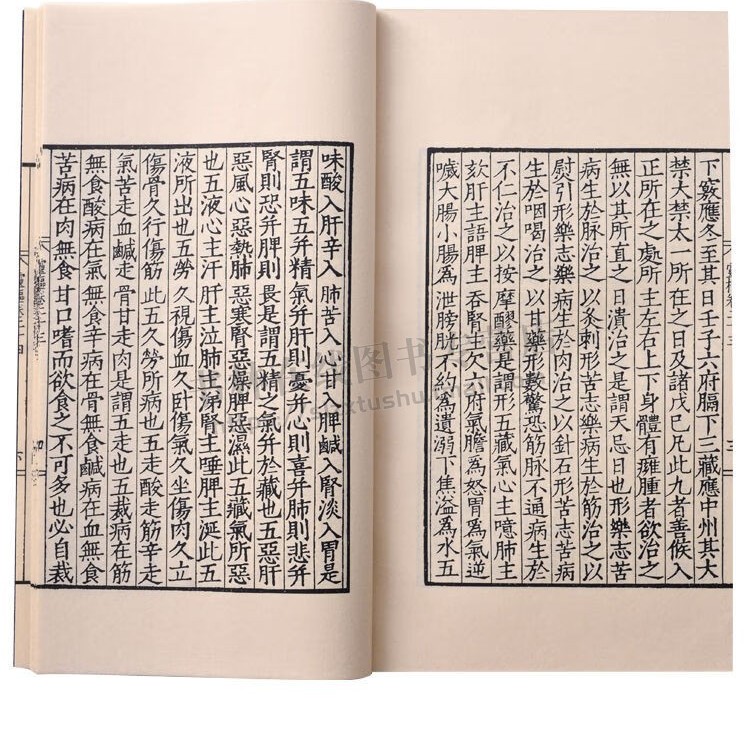 下竅應冬至其日壬子六府膈下三藏應中州其大
禁大禁太一所在之日及諸戊己凡此九者善候入
正所在之處所主左右上下身體有癰腫者欲治之
無以其所直之日潰治之是謂天忌日也形樂志苦
病生於脉治之以灸刺形苦志樂病生於筋治之以
熨引形樂志樂病生於肉治之以針石形苦志苦病
生於咽喝治之以甘藥形數驚恐筋脉不通病生於
不仁治之以按摩醪藥是謂形五藏氣心主噫肺主
欬肝主語脾主吞腎主欠六府氣膽爲怒胃爲氣逆
噦大腸小腸爲泄膀胱不約爲遺溺下焦溢爲水五
味酸入肝辛入肺苦入心甘入脾鹹入腎淡入胃是
謂五味五并精氣并肝則憂并心則喜并肺則悲并
腎則恐并脾則畏是謂五精之氣并於藏也五惡肝
惡風心惡熱肺惡寒腎惡燥脾惡濕此五藏氣所惡
也五液心主汗肝主泣肺主涕腎主唾脾主涎此五
液所出也五勞久視傷血久卧傷氣久坐傷肉久立
傷骨久行傷筋此五久勞所病也五走酸走筋辛走
氣苦走血鹹走骨甘走肉是謂五走也五裁病在筋
無食酸病在氣無食辛病在骨無食鹹病在血無食
苦病在肉無食甘口嗜而欲食之不可多也必自裁